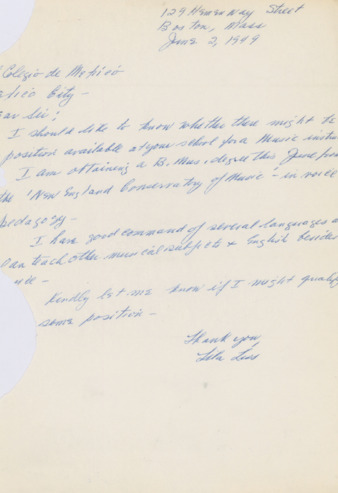 129 Hemenway Street
Boston, Mass
June 2, 1949
Colegio de México
xico City –
ear Sir;
I should like to know whether there might be
position available at your school for a Music instru
I am obtaining a B. Mus. degree this June from
the "New England Conservatory of Music" – in voice
pedagogy –
I have good command of several languages a
can teach other musical subjects & English besides
Kindly let me know if I might qualify
some position –
Thank you